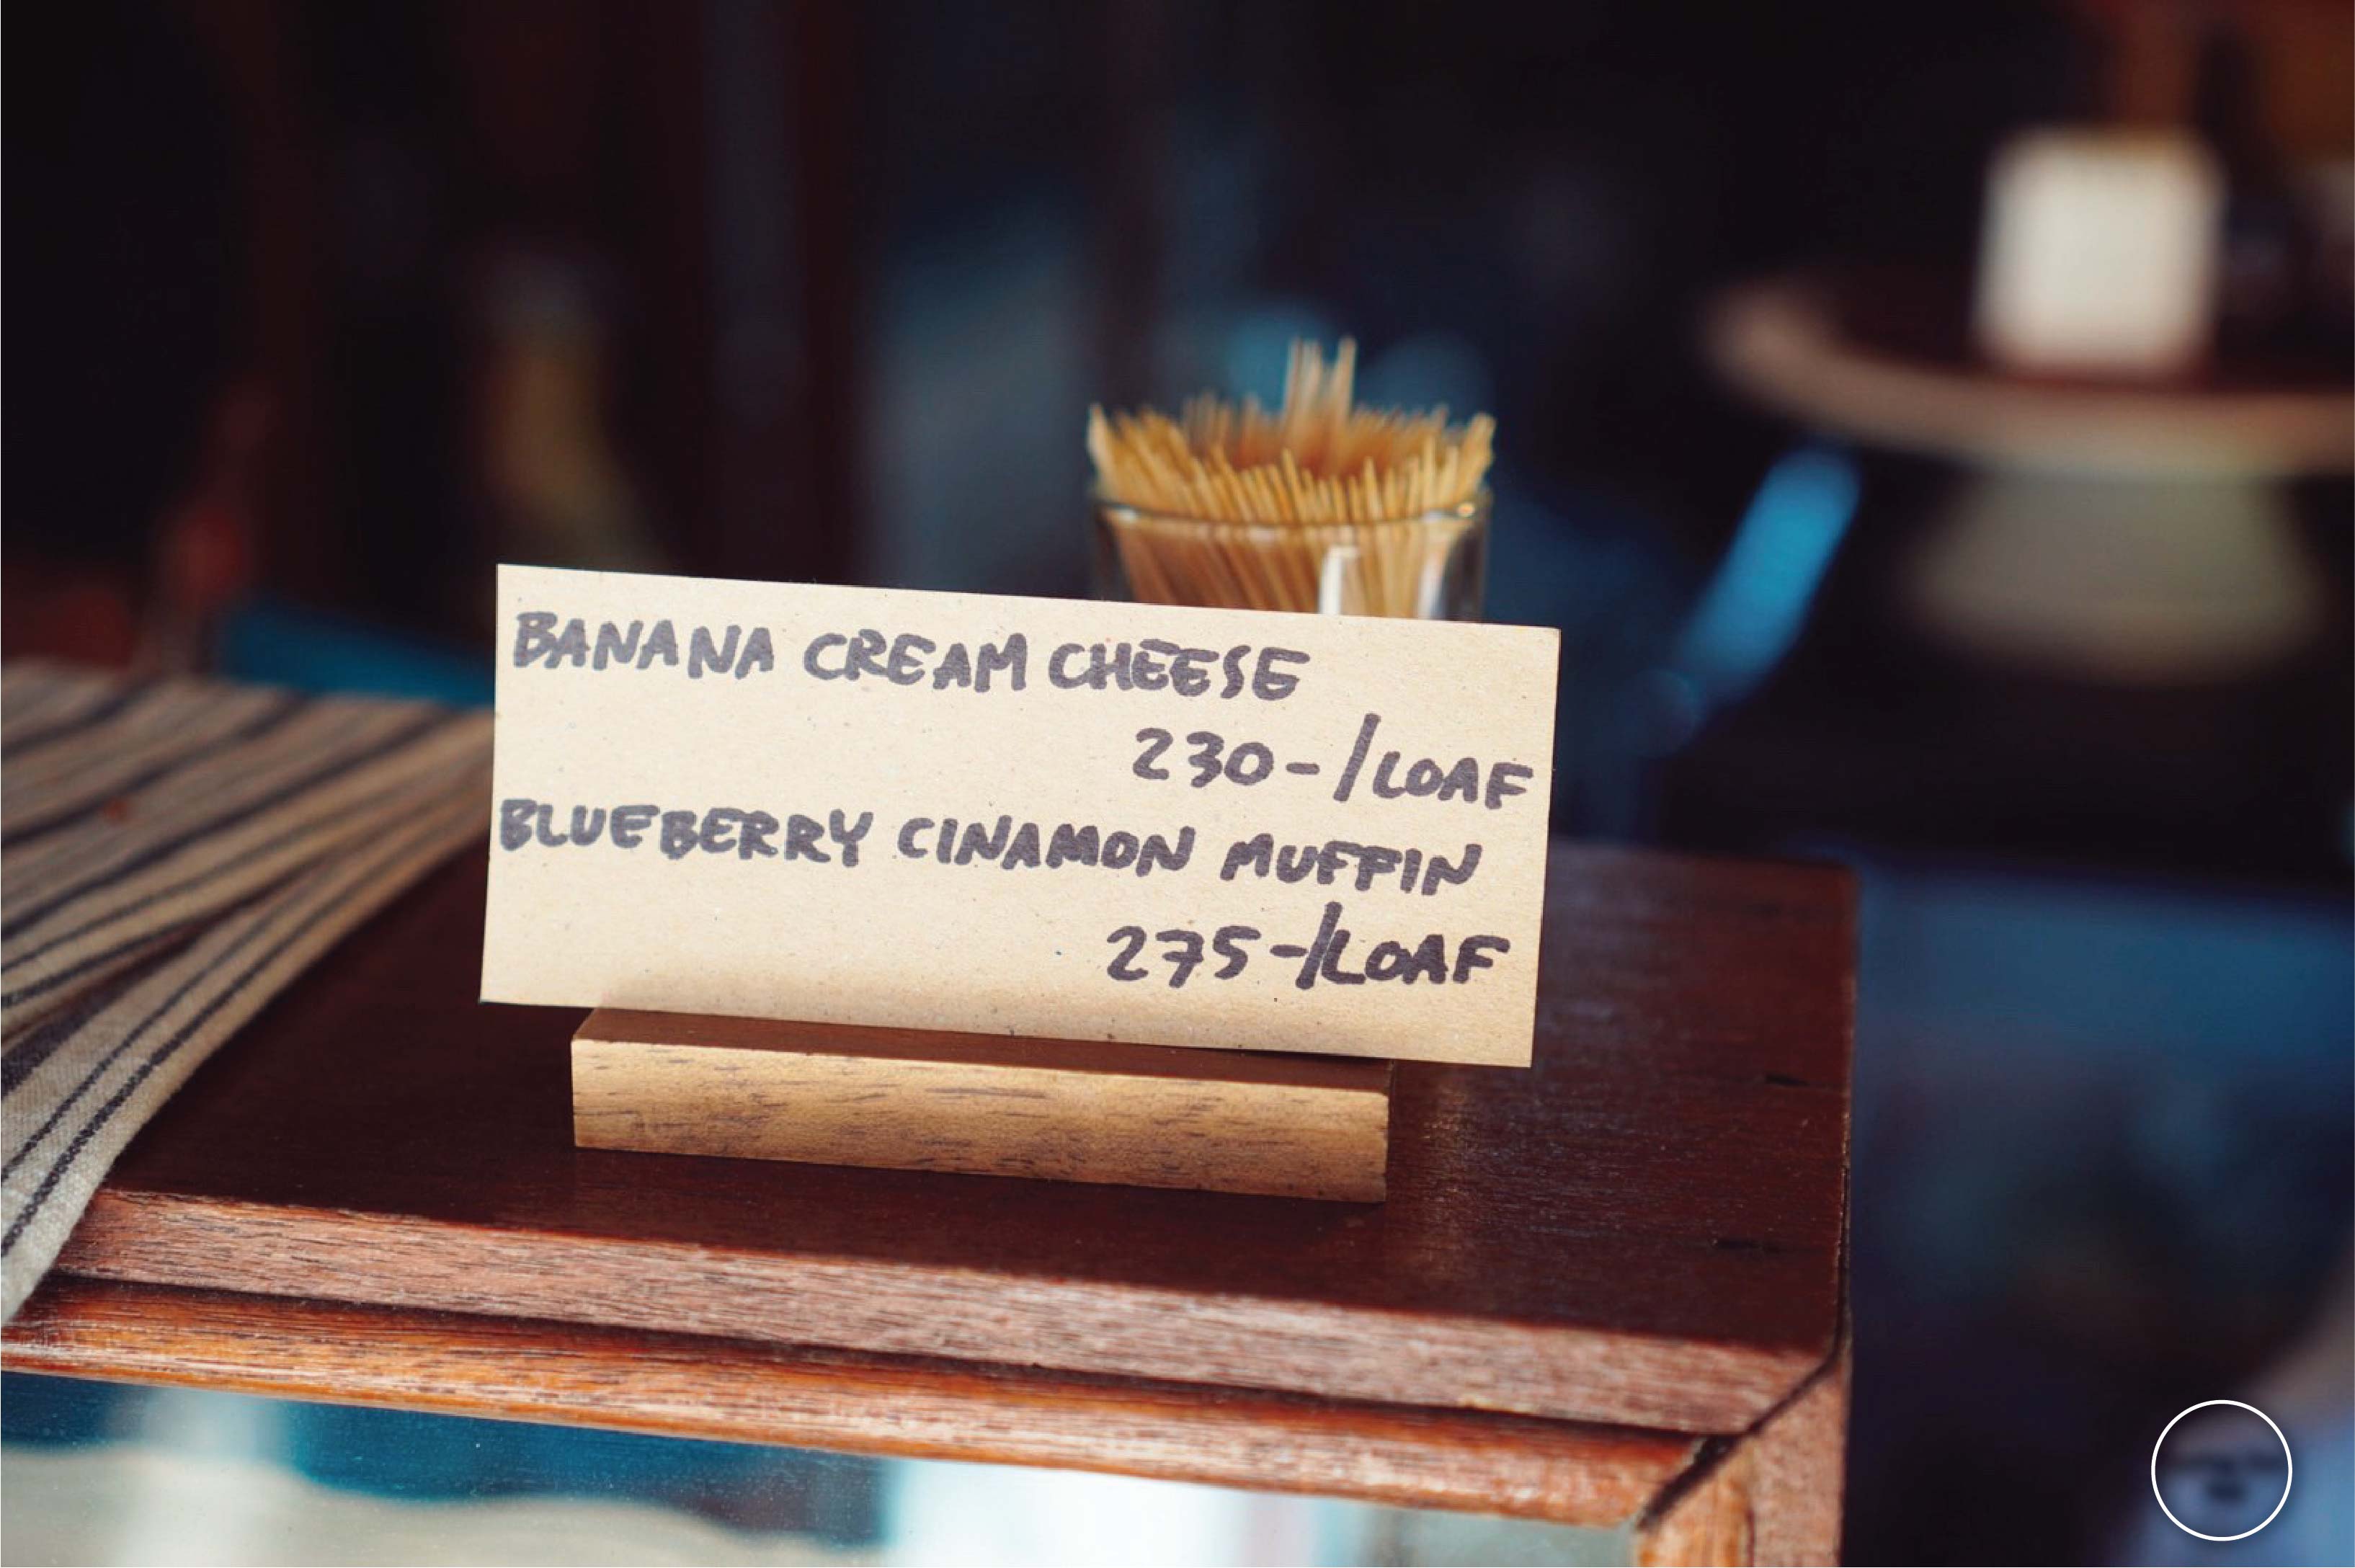 BANANA CREAM CHEESE
230-/LOAF
BLUEBERRY CINAMON MUFFIN
275-/LOAF